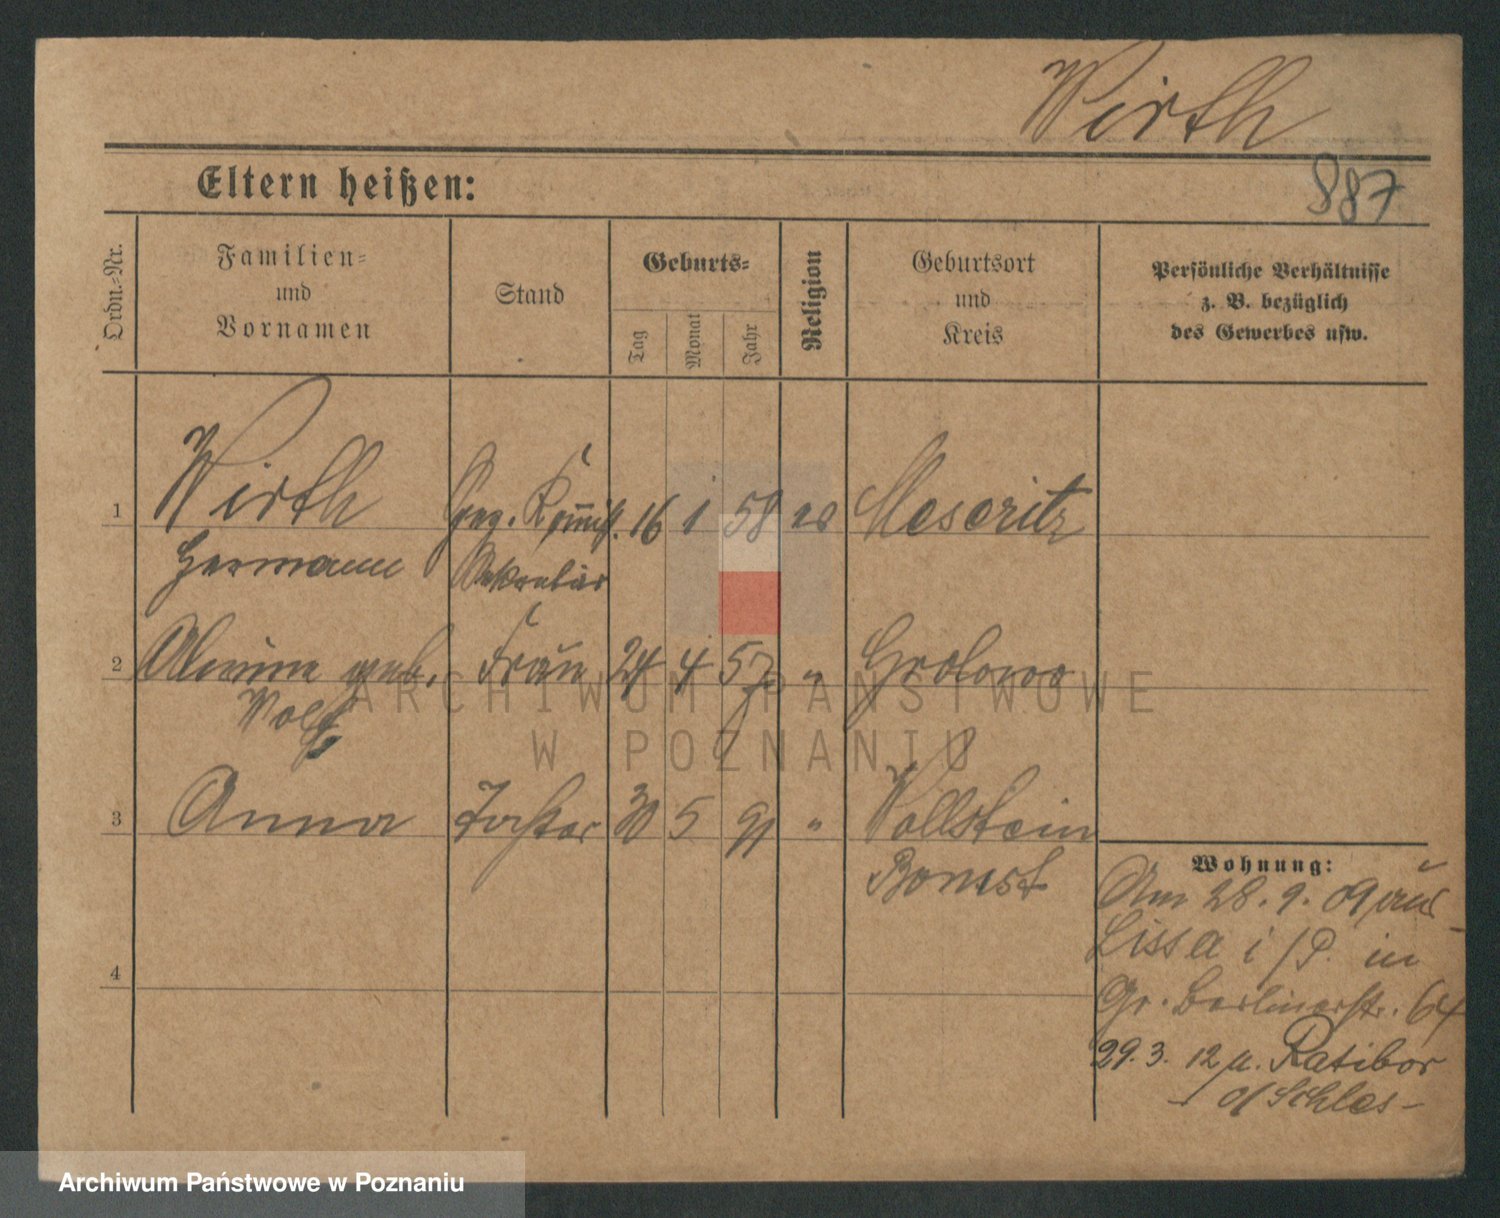 Wirth
887
Eltern heißen:
Ordn.-Nr.
Familien-
und
Vornamen
Stand
Geburts-
Tag
Monat
Jahr
Religion
Geburtsort
und
Kreis
Persönliche Verhältnisse
z. B. bezüglich
des Gewerbes usw.
1 Wirth 16 1 58 ev Meseritz
Hermann Sekretär
2 geb. Frau 24 4 57 "
Wolff
3 Anna Tochter 30 5 91 " Wollstein
Bomst
4
Wohnung:
Am 28. 9. 09 aus
Lissa i/P. in
Gr. Berlinerstr. 64
29. 3. 12 n. Ratibor
o/Schles-
ARCHIWUM PAŃSTWOWE
W POZNANIU
Archiwum Państwowe w Poznaniu